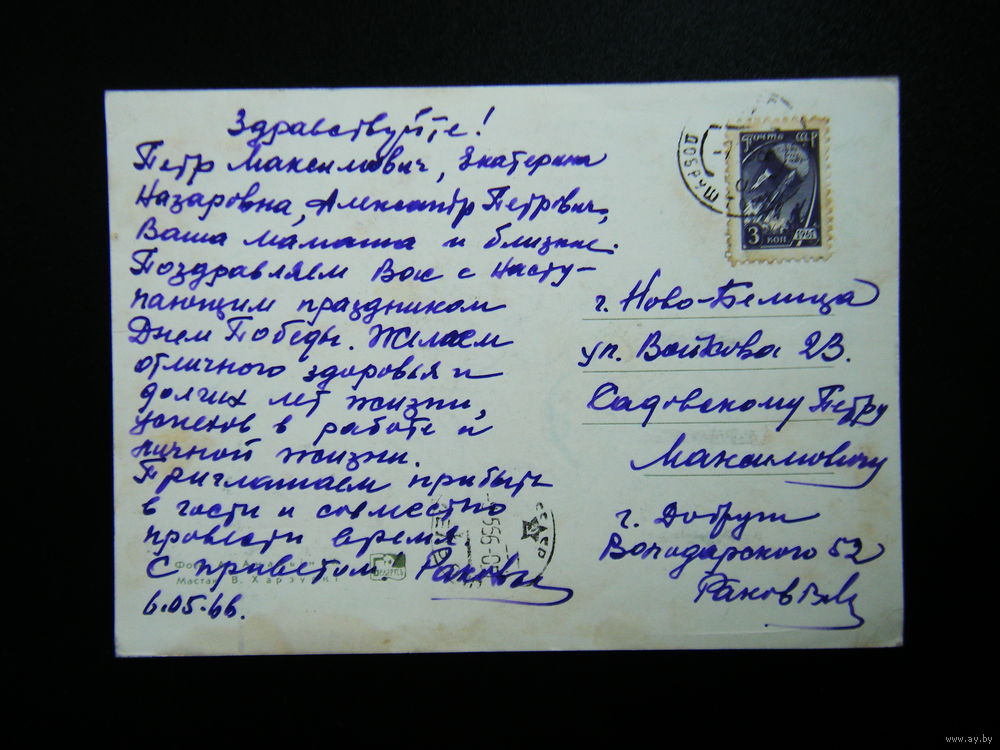 Здравствуйте!
Петр Максимович, Екатерина
Назаровна, Александр Петрович,
Ваша мамаша и близкие.
Поздравляем Вас с насту-
пающим праздником
Днем Победы. Желаем
отличного здоровья и
долгих лет жизни,
успехов в работе и
личной жизни.
Приглашаем прибыть
в гости и совместно
провести время.
С приветом. Раковы
6.05.66.
Почта СССР
3 коп
1961
г. Ново-Белица
ул. Войкова 23.
Садовскому Петру
Максимовичу
г. Добруш
Володарского 52
Раков
Мастак В.
www.ay.by